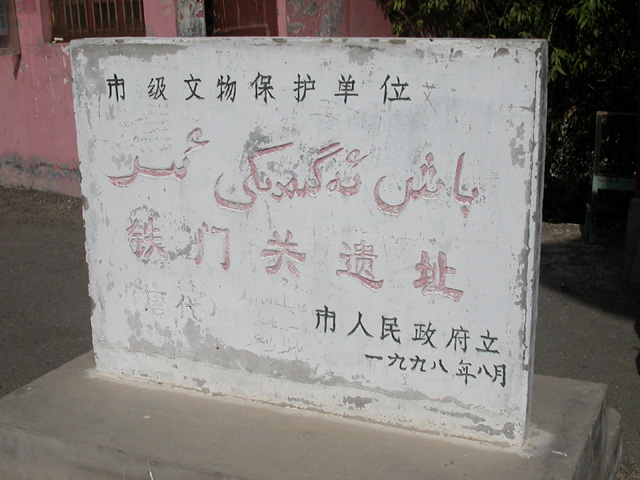 市级文物保护单位
باش ئەگىمدىكى ئىسىر
铁门关遗址
（唐代）
市人民政府立
一九九八年八月